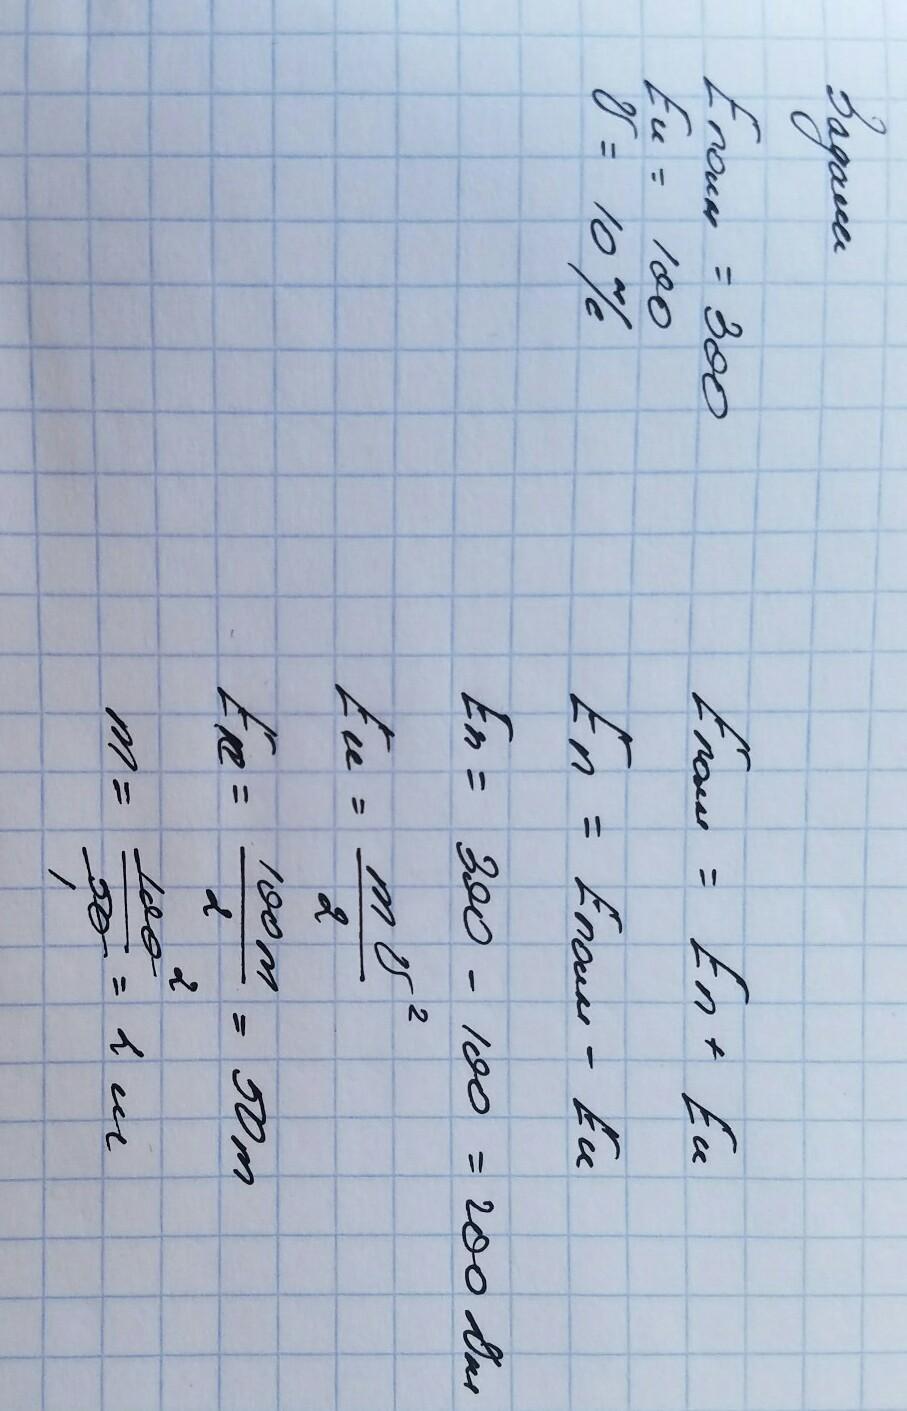 Задача
Eполн = 300
Eк = 100
v = 10 м/с
Eполн = Eп + Eк
Eп = Eполн - Eк
Eп = 300 - 100 = 200 Дж
Eк = mv²/2
Eк = 100m/2 = 50m
m = 100/50 = 2 кг